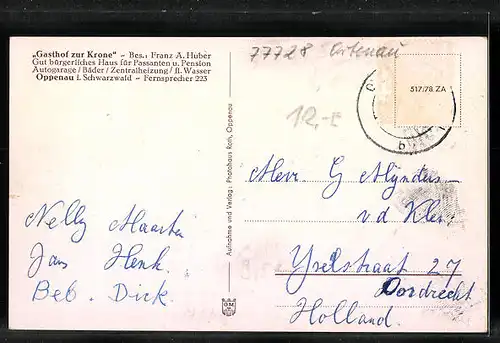 „Gasthof zur Krone“ – Bes.: Franz A. Huber
Gut bürgerliches Haus für Passanten u. Pension
Autogarage / Bäder / Zentralheizung / fl. Wasser
Oppenau i. Schwarzwald – Fernsprecher 223
77728 Ortenau
517/78. ZA
12,-
Aufnahme und Verlag: Photohaus Roth, Oppenau
Mevr. G Mynders-
v d Kley
Yselstraat 27
Dordrecht
Holland.
Nelly Maarten
Jan Henk.
Beb. Dick.